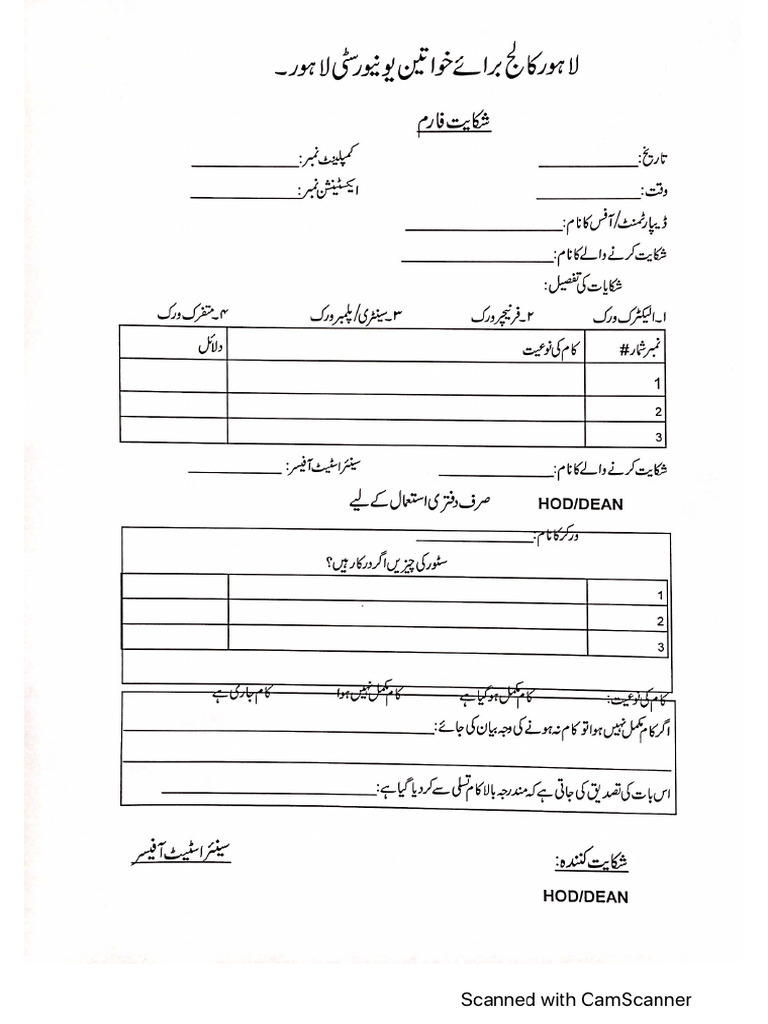 لاہور کالج برائے خواتین یونیورسٹی لاہور۔
شکایت فارم
تاریخ: ____________ کمپلینٹ نمبر: ____________
وقت: ____________ ایکسٹینشن نمبر: ____________
ڈیپارٹمنٹ/آفس کا نام: ____________
شکایت کرنے والے کا نام: ____________
شکایات کی تفصیل:
۱۔الیکٹرک ورک ۲۔فرنیچر ورک ۳۔سینٹری/پلمبر ورک ۴۔متفرک ورک
نمبر شمار# کام کی نوعیت دلائل
1
2
3
شکایت کرنے والے کا نام: ____________ سینئر اسٹیٹ آفیسر: ____________
HOD/DEAN صرف دفتری استعمال کے لیے
ورکر کا نام: ____________
سٹور کی چیزیں اگر درکار ہیں؟
1
2
3
کام کی نوعیت: کام مکمل ہو گیا ہے کام مکمل نہیں ہوا کام جاری ہے
اگر کام مکمل نہیں ہوا تو کام نہ ہونے کی وجہ بیان کی جائے: ____________
اس بات کی تصدیق کی جاتی ہے کہ مندرجہ بالا کام تسلی سے کر دیا گیا ہے: ____________
شکایت کنندہ: سینئر اسٹیٹ آفیسر
HOD/DEAN
Scanned with CamScanner